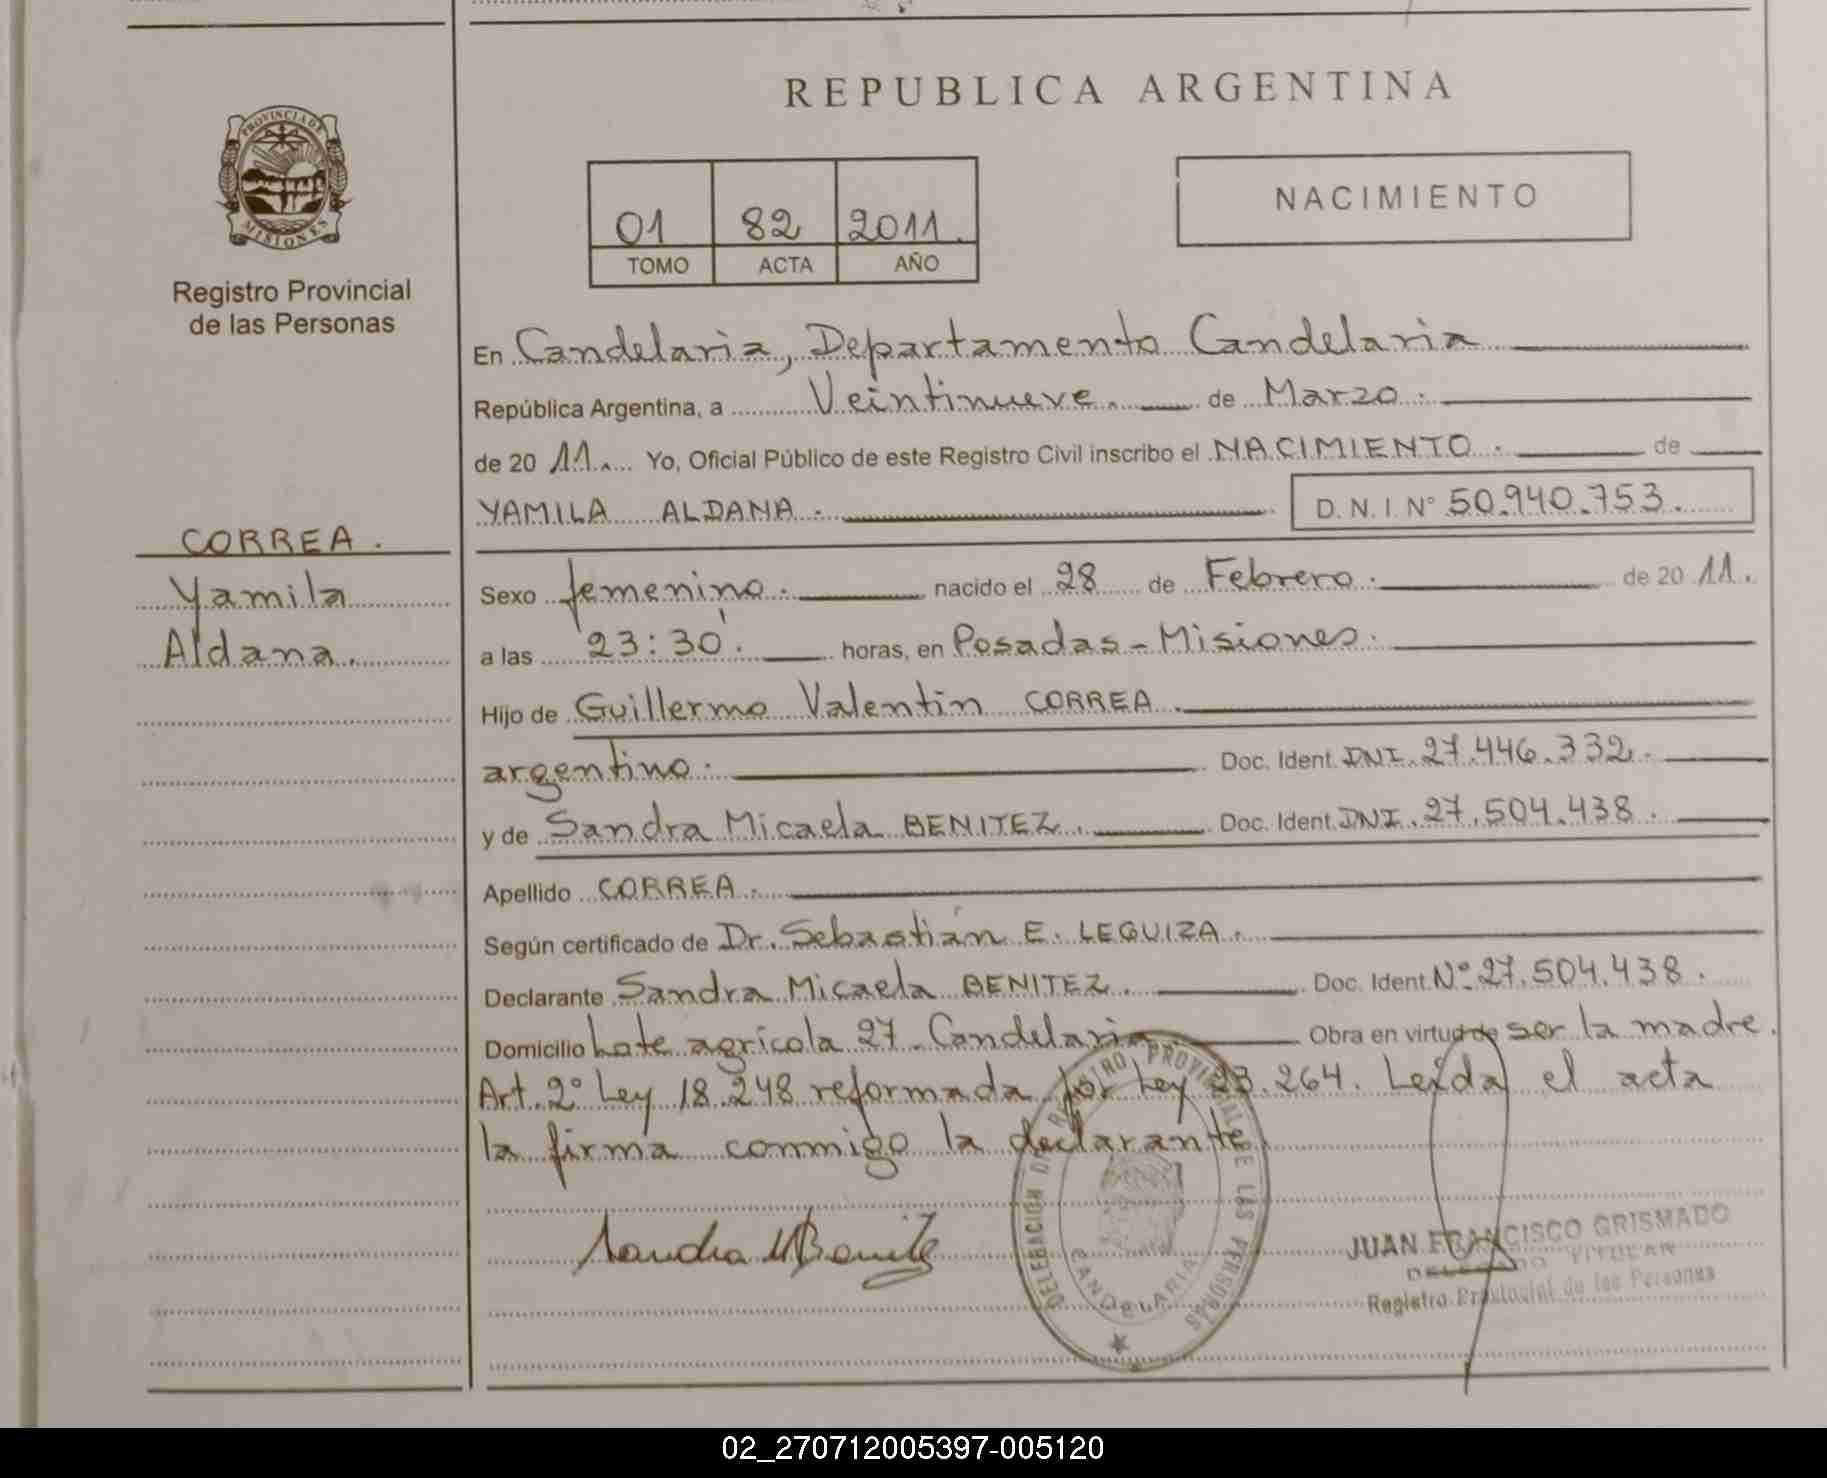 REPUBLICA ARGENTINA
PROVINCIA DE
MISIONES
Registro Provincial
de las Personas
01 82 2011.
TOMO ACTA AÑO
NACIMIENTO
En Candelaria, Departamento Candelaria
República Argentina, a Veintinueve. de Marzo.
de 20 11. Yo, Oficial Público de este Registro Civil inscribo el NACIMIENTO. de
YAMILA ALDANA. D.N.I. Nº 50.940.753.
CORREA.
Yamila
Aldana.
Sexo femenino. nacido el 28 de Febrero. de 20 11.
a las 23:30'. horas, en Posadas - Misiones.
Hijo de Guillermo Valentin CORREA.
argentino. Doc. Ident. DNI. 27.446.332.
y de Sandra Micaela BENITEZ. Doc. Ident. DNI. 27.504.438.
Apellido CORREA.
Según certificado de Dr. Sebastián E. LEQUIZA.
Declarante Sandra Micaela BENITEZ. Doc. Ident. Nº 27.504.438.
Domicilio Lote agrícola 27 - Candelaria Obra en virtud de ser la madre.
Art. 2º Ley 18.248 reformada por Ley 23.264. Leída el acta
la firma conmigo la declarante.
Sandra M Benitez
DELEGACION DEL REGISTRO PROVINCIAL DE LAS PERSONAS
CANDELARIA
JUAN FRANCISCO GRISMADO
DELEGADO TITULAR
Registro Provincial de las Personas
02_270712005397-005120